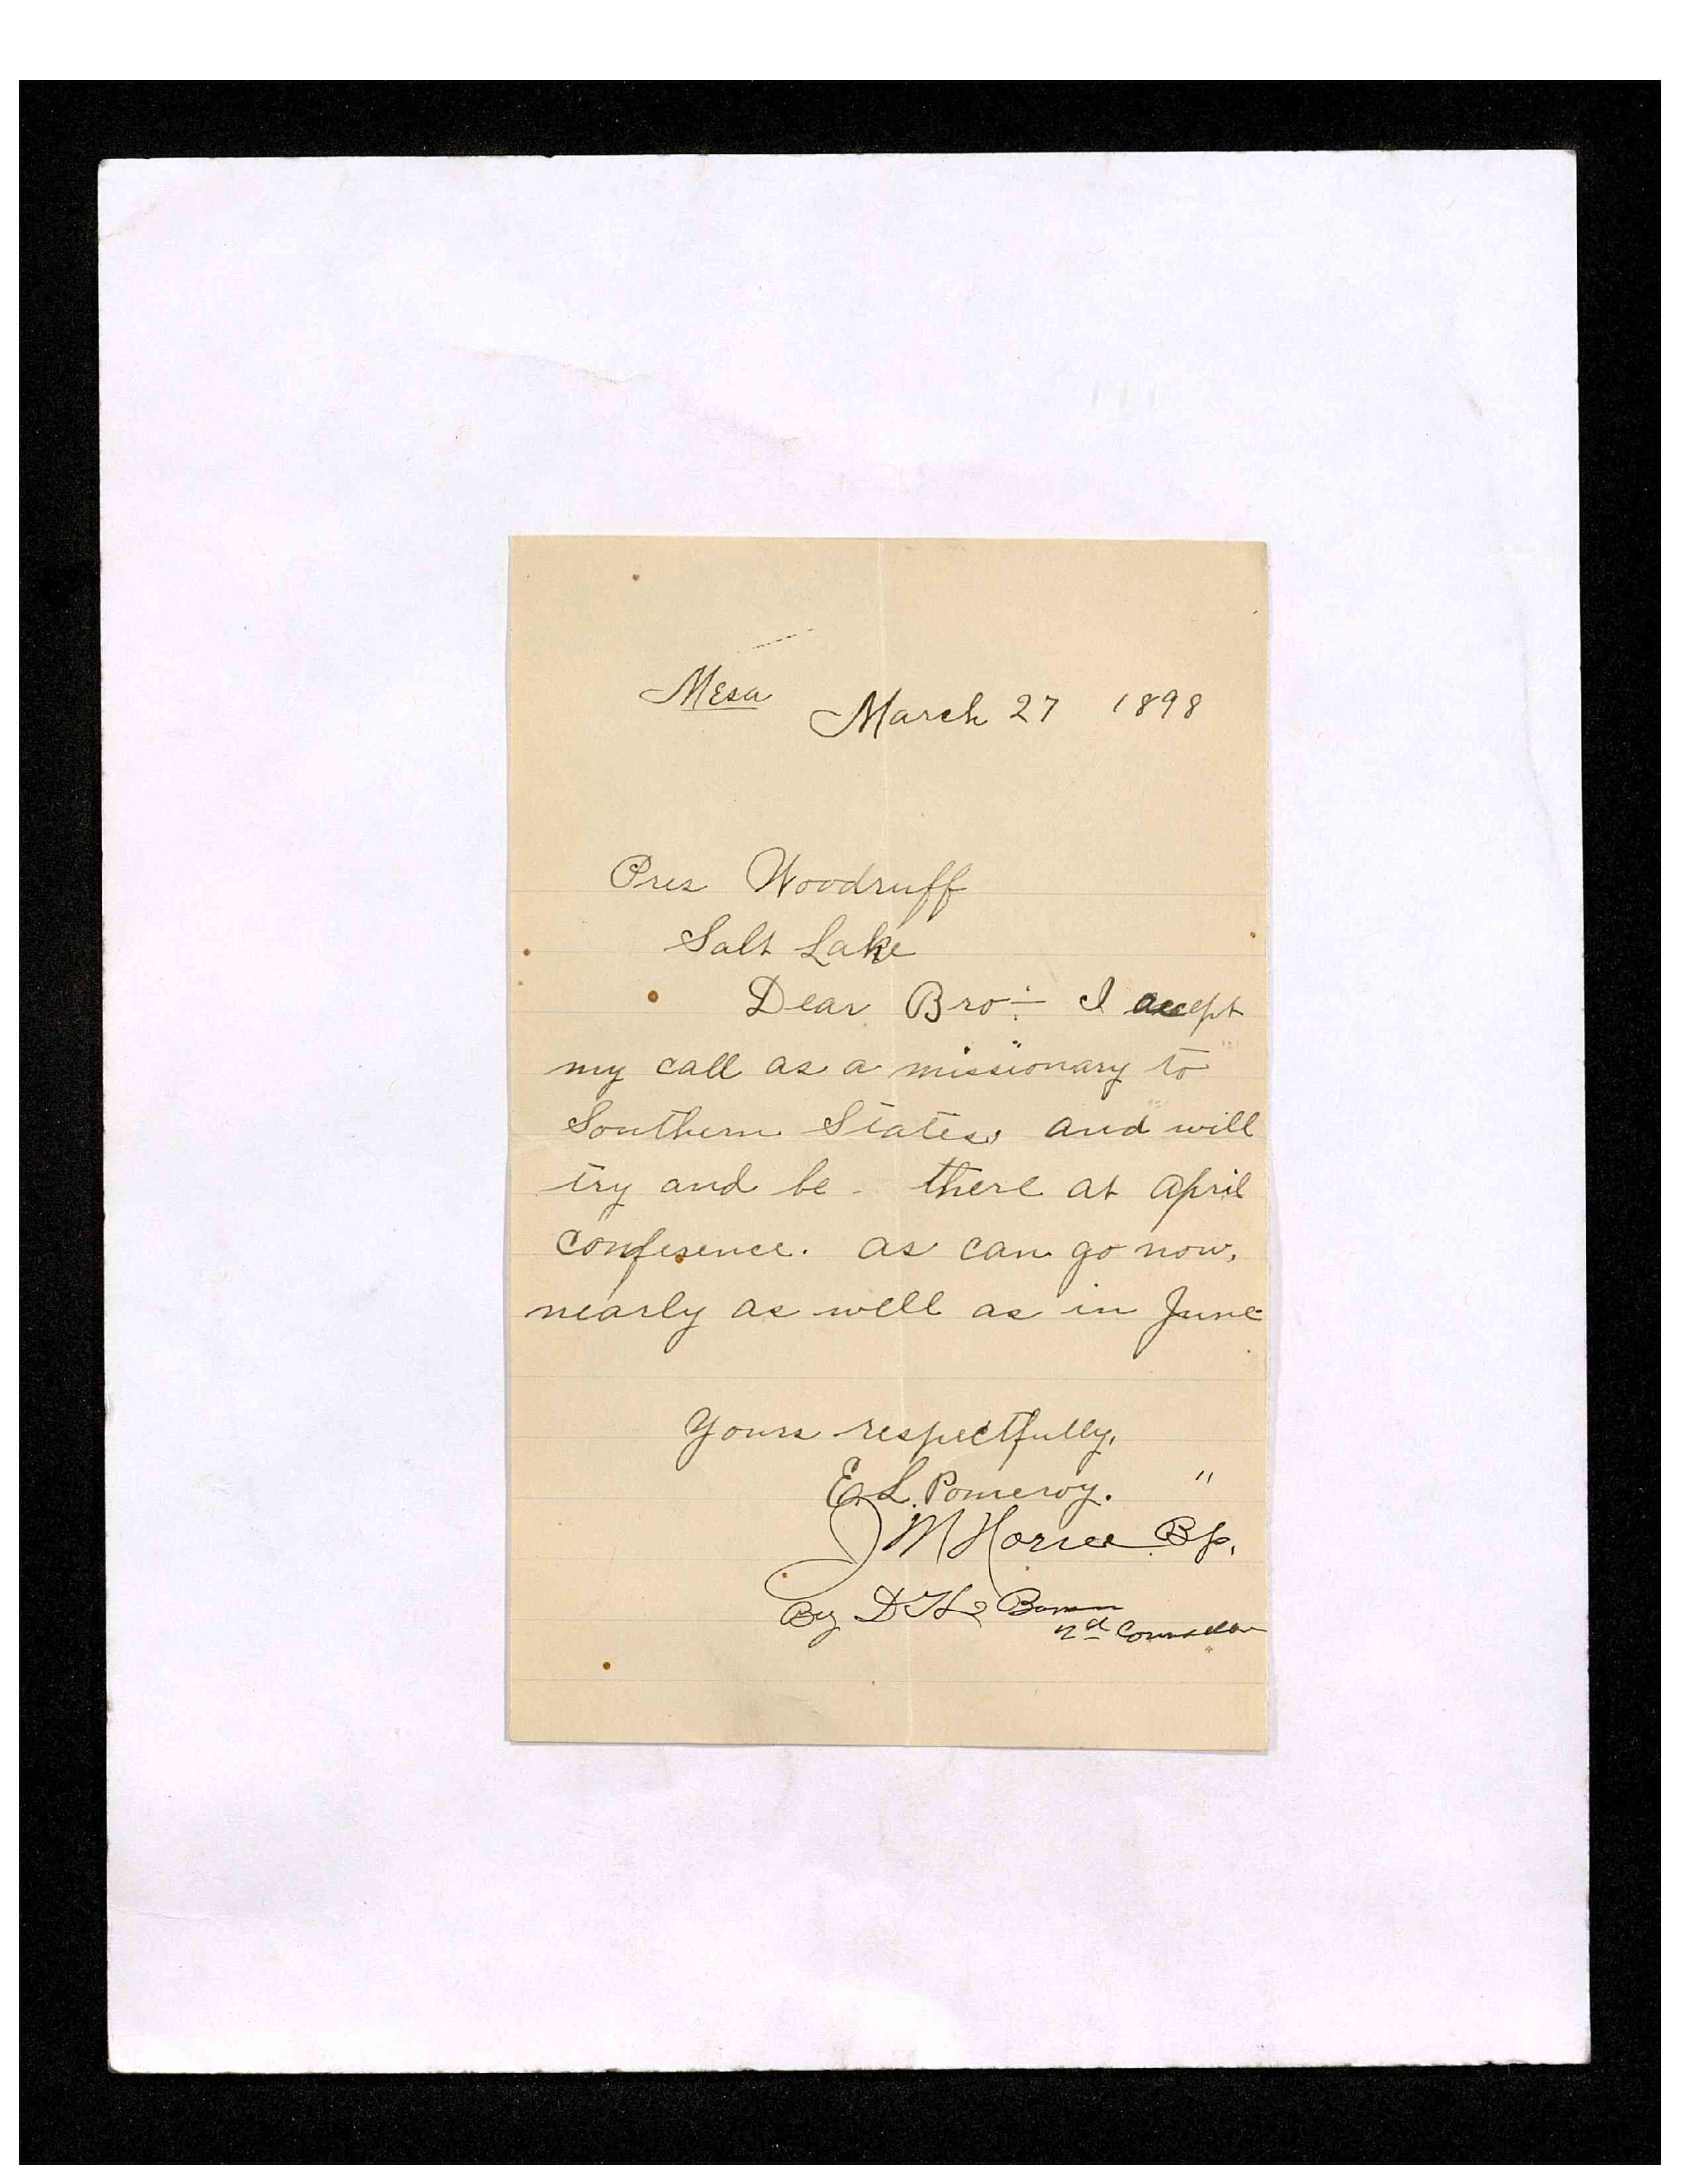 Mesa March 27 1898
Pres Woodruff
Salt Lake
Dear Bro:- I accept
my call as a missionary to
Southern States, and will
try and be - there at April
Conference. as can go now,
nearly as well as in June
Yours respectfully,
E. L. Pomeroy. "
J M Horne Bp.
By D
2d Counsellor